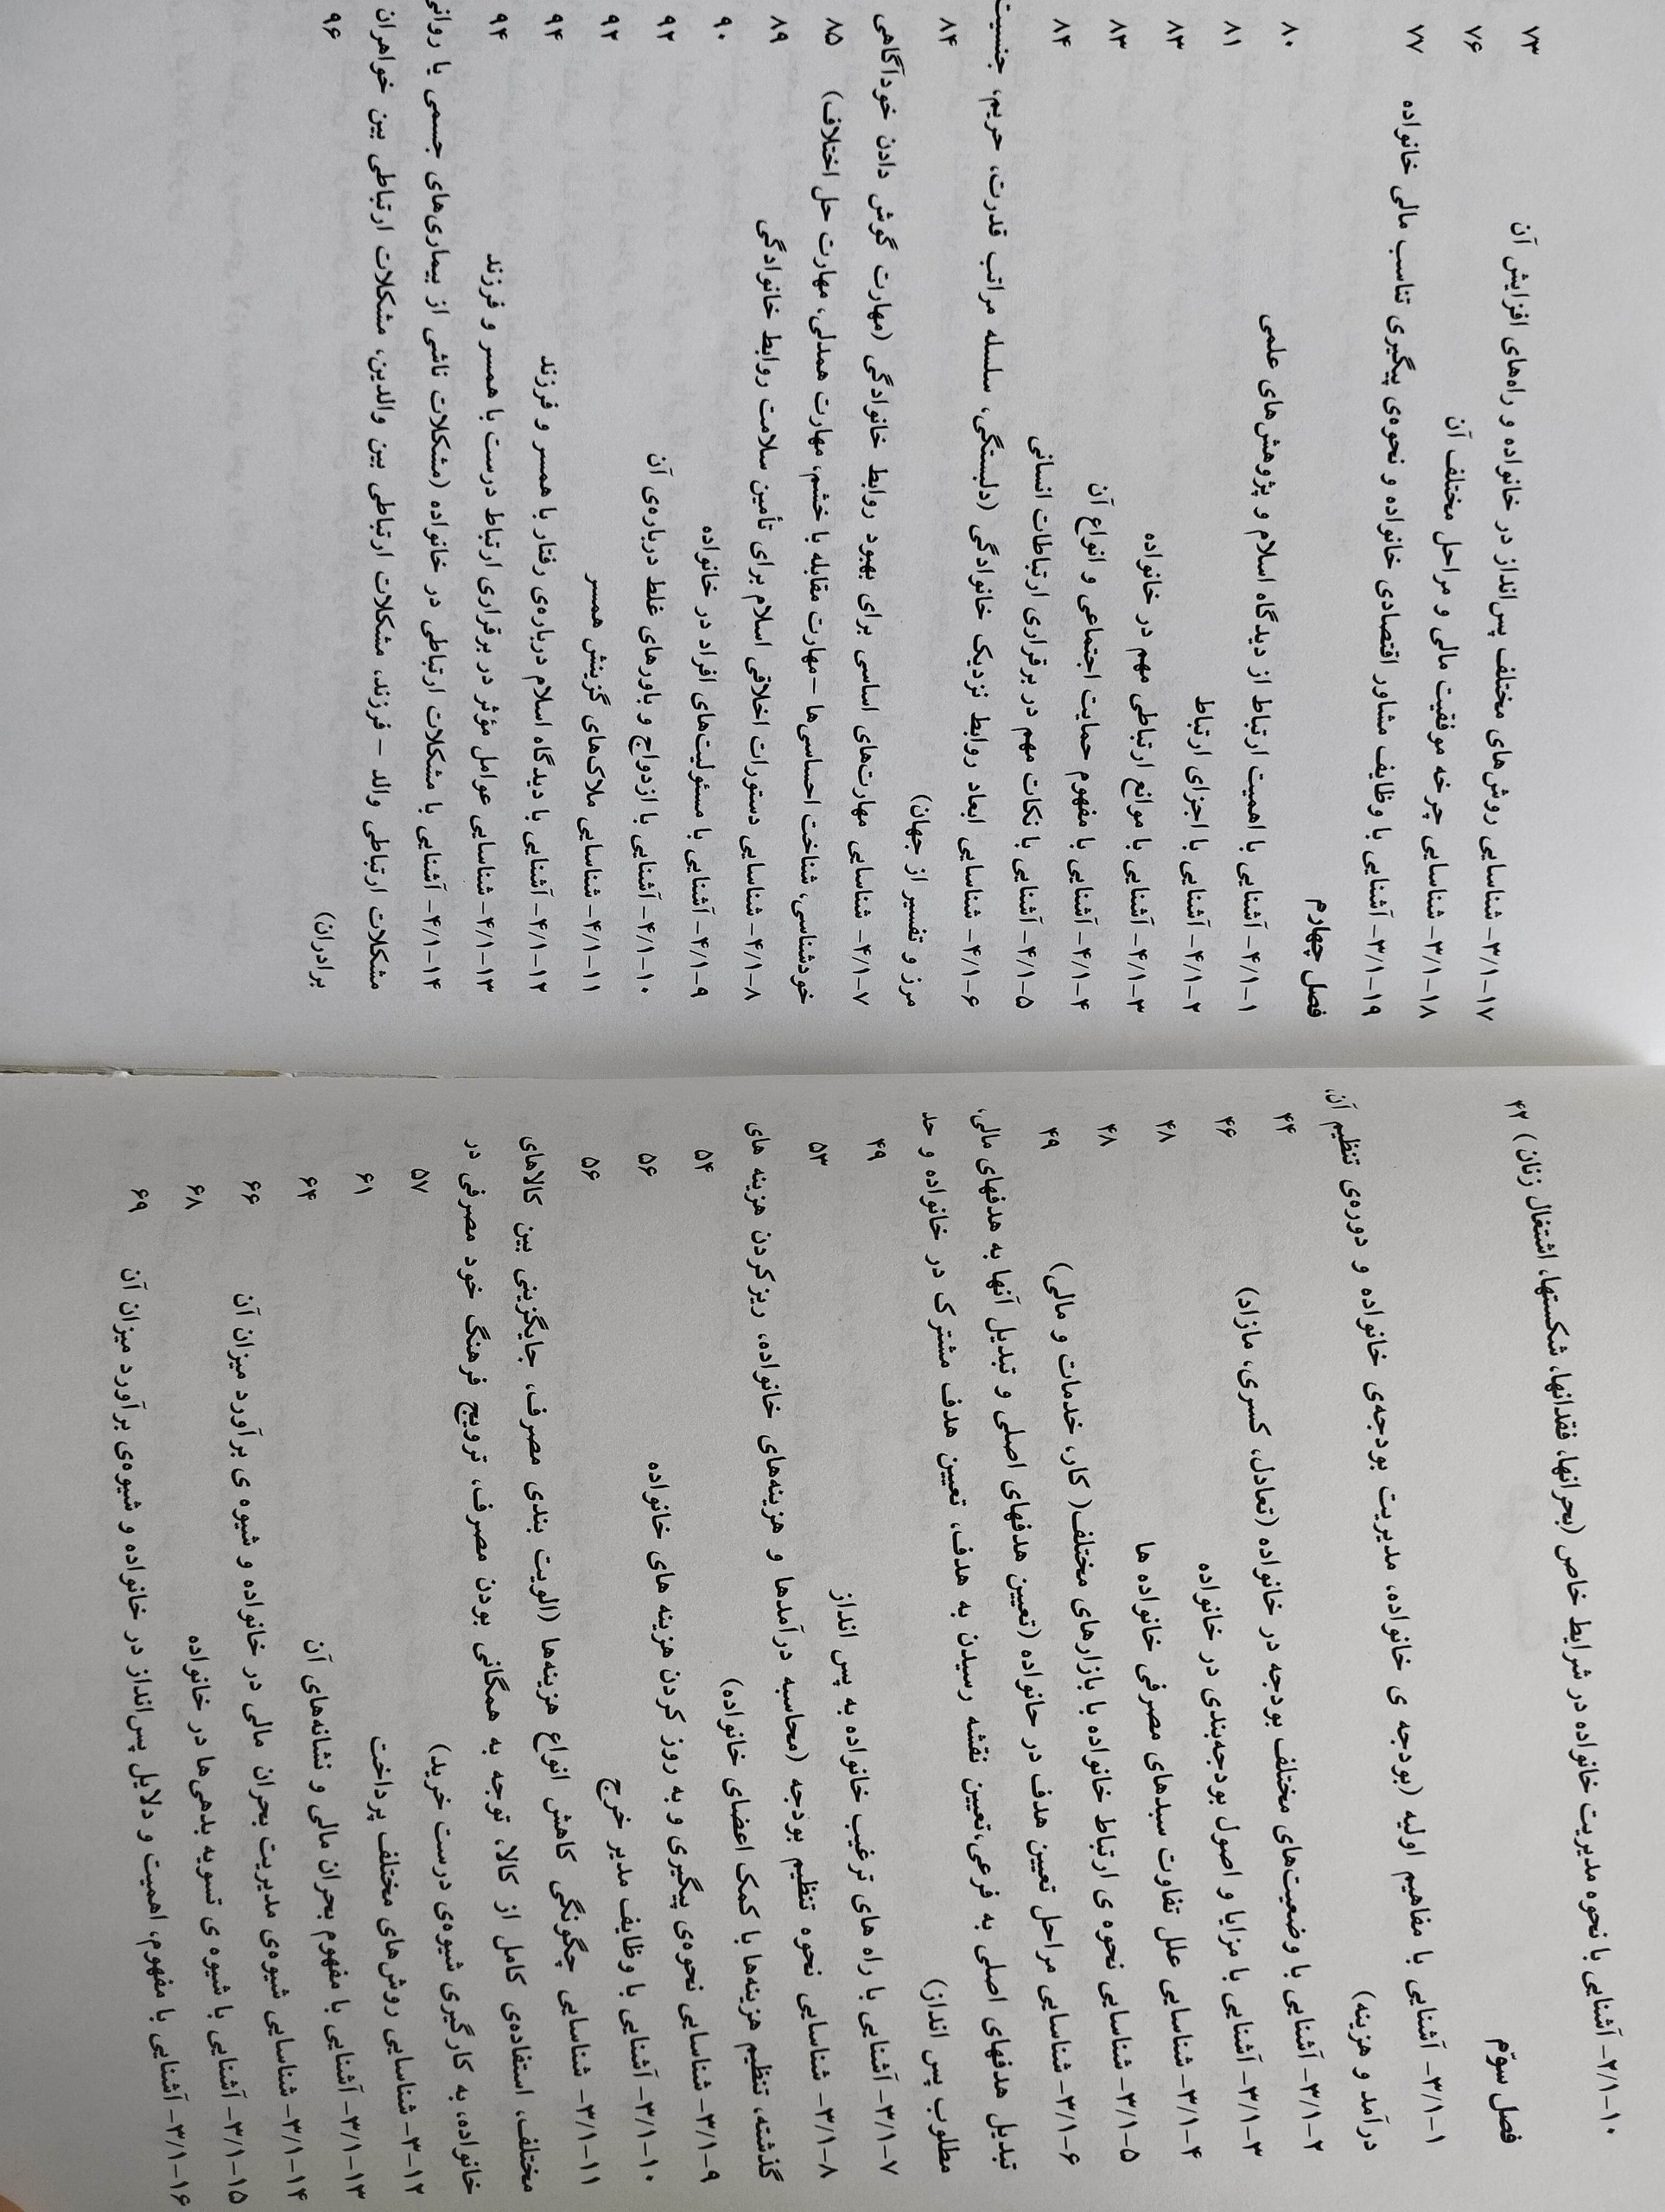 ۲/۱-۱۰- آشنایی با نحوه مدیریت خانواده در شرایط خاص (بحرانها، فقدانها، شکستها، اشتغال زنان) ۴۲
فصل سوّم
۳/۱-۱- آشنایی با مفاهیم اولیه (بودجه ی خانواده، مدیریت بودجه‌ی خانواده و دوره‌ی تنظیم آن،
درآمد و هزینه) ۴۴
۳/۱-۲- آشنایی با وضعیت‌های مختلف بودجه در خانواده (تعادل، کسری، مازاد) ۴۶
۳/۱-۳- آشنایی با مزایا و اصول بودجه‌بندی در خانواده ۴۸
۳/۱-۴- شناسایی علل تفاوت سبدهای مصرفی خانواده ها ۴۸
۳/۱-۵- شناسایی نحوه ی ارتباط خانواده با بازارهای مختلف( کار، خدمات و مالی) ۴۹
۳/۱-۶- شناسایی مراحل تعیین هدف در خانواده (تعیین هدفهای اصلی و تبدیل آنها به هدفهای مالی،
تبدیل هدفهای اصلی به فرعی،تعیین نقشه رسیدن به هدف، تعیین هدف مشترک در خانواده و حد
مطلوب پس انداز) ۴۹
۳/۱-۷- آشنایی با راه های ترغیب خانواده به پس انداز ۵۳
۳/۱-۸- شناسایی نحوه تنظیم بودجه (محاسبه درآمدها و هزینه‌های خانواده، ریزکردن هزینه های
گذشته، تنظیم هزینه‌ها با کمک اعضای خانواده) ۵۴
۳/۱-۹- شناسایی نحوه‌ی پیگیری و به روز کردن هزینه های خانواده ۵۶
۳/۱-۱۰- آشنایی با وظایف مدیر خرج ۵۶
۳/۱-۱۱- شناسایی چگونگی کاهش انواع هزینه‌ها (الویت بندی مصرف، جایگزینی بین کالاهای
مختلف، استفاده‌ی کامل از کالا، توجه به همگانی بودن مصرف، ترویج فرهنگ خود مصرفی در
خانواده، به کارگیری شیوه‌ی درست خرید) ۵۷
۳-۱۲- شناسایی روش‌های مختلف پرداخت ۶۱
۳/۱-۱۳- آشنایی با مفهوم بحران مالی و نشانه‌های آن ۶۴
۳/۱-۱۴- شناسایی شیوه‌ی مدیریت بحران مالی در خانواده و شیوه ی برآورد میزان آن ۶۶
۳/۱-۱۵- آشنایی با شیوه ی تسویه بدهی‌ها در خانواده ۶۸
۳/۱-۱۶- آشنایی با مفهوم، اهمیت و دلایل پس‌انداز در خانواده و شیوه‌ی برآورد میزان آن ۶۹
۳/۱-۱۷- شناسایی روش‌های مختلف پس‌انداز در خانواده و راه‌های افزایش آن ۷۳
۳/۱-۱۸- شناسایی چرخه موفقیت مالی و مراحل مختلف آن ۷۶
۳/۱-۱۹- آشنایی با وظایف مشاور اقتصادی خانواده و نحوه‌ی پیگیری تناسب مالی خانواده ۷۷
فصل چهارم
۴/۱-۱- آشنایی با اهمیت ارتباط از دیدگاه اسلام و پژوهش‌های علمی ۸۰
۴/۱-۲- آشنایی با اجزای ارتباط ۸۱
۴/۱-۳- آشنایی با موانع ارتباطی مهم در خانواده ۸۳
۴/۱-۴- آشنایی با مفهوم حمایت اجتماعی و انواع آن ۸۳
۴/۱-۵- آشنایی با نکات مهم در برقراری ارتباطات انسانی ۸۴
۴/۱-۶- شناسایی ابعاد روابط نزدیک خانوادگی (دلبستگی، سلسله مراتب قدرت، حریم، جنسیت
مرز و تفسیر از جهان) ۸۴
۴/۱-۷- شناسایی مهارت‌های اساسی برای بهبود روابط خانوادگی (مهارت گوش دادن خودآگاهی
خودشناسی، شناخت احساسی‌ها –مهارت مقابله با خشم، مهارت همدلی، مهارت حل اختلاف) ۸۵
۴/۱-۸- شناسایی دستورات اخلاقی اسلام برای تأمین سلامت روابط خانوادگی ۸۹
۴/۱-۹- آشنایی با مسئولیت‌های افراد در خانواده ۹۰
۴/۱-۱۰- آشنایی با ازدواج و باورهای غلط درباره‌ی آن ۹۲
۴/۱-۱۱- شناسایی ملاک‌های گزینش همسر ۹۲
۴/۱-۱۲- آشنایی با دیدگاه اسلام درباره‌ی رفتار با همسر و فرزند ۹۴
۴/۱-۱۳- شناسایی عوامل مؤثر در برقراری ارتباط درست با همسر و فرزند ۹۴
۴/۱-۱۴- آشنایی با مشکلات ارتباطی در خانواده (مشکلات ناشی از بیماری‌های جسمی یا روانی
مشکلات ارتباطی والد – فرزند، مشکلات ارتباطی بین والدین، مشکلات ارتباطی بین خواهران
برادران) ۹۶